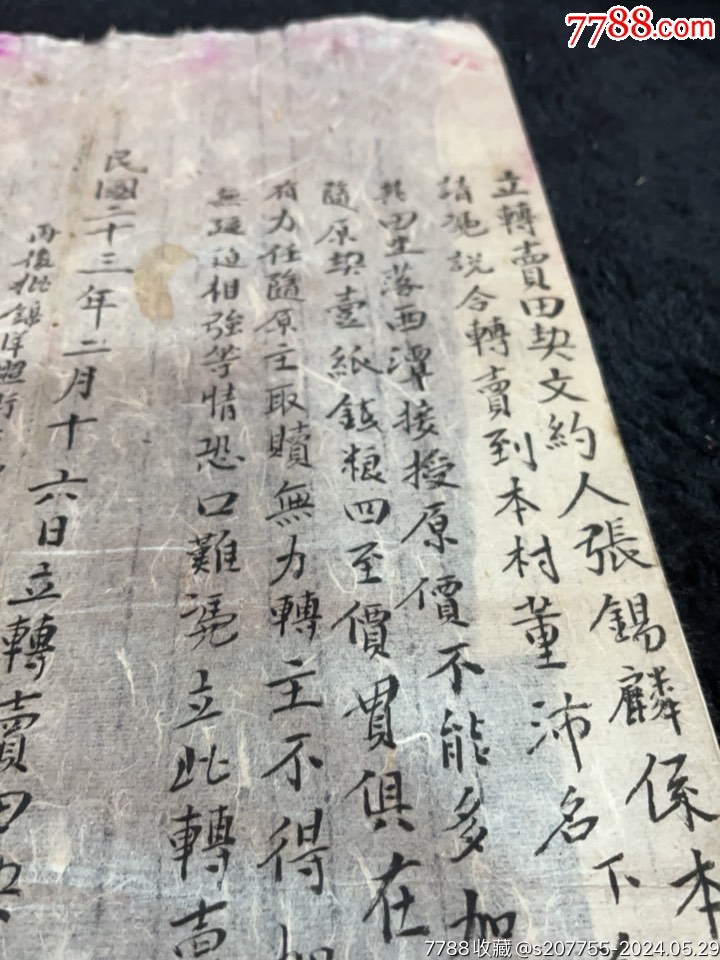 7788.com
立轉賣田契文約人張錫麟係本
請憑說合轉賣到本村董沛名下
田坐落西潭接授原價不能多加
隨原契壹紙錢粮四至價買俱在
有力任隨原主取贖無力轉主不得加
無逼迫相強等情恐口難凴立此轉賣
民國二十三年二月十六日立轉賣田契
再後批錢
7788收藏@s207755-2024.05.29